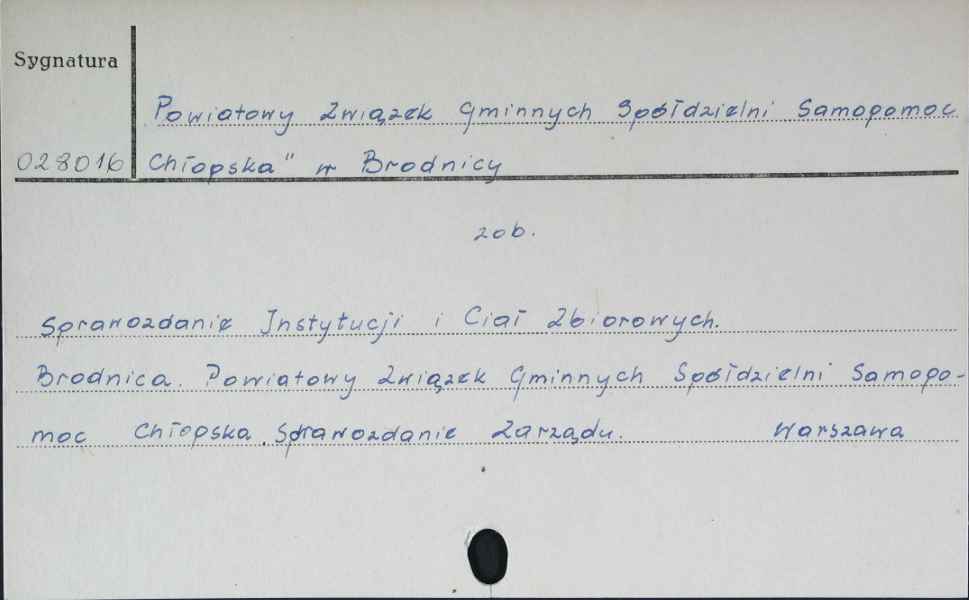 Sygnatura
Powiatowy Związek Gminnych Spółdzielni Samopomoc
028016 Chłopska" w Brodnicy
zob.
Sprawozdanie Instytucji i Ciał Zbiorowych.
Brodnica. Powiatowy Związek Gminnych Spółdzielni Samopo-
moc Chłopska. Sprawozdanie Zarządu. Warszawa